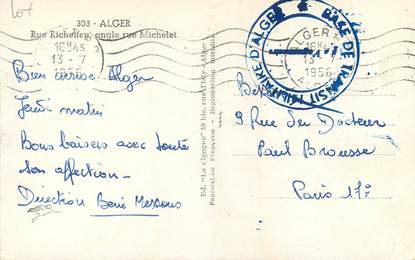 lot
303 - ALGER
Rue Richelieu, angle rue Michelet
16H45
13-7
Bien arrivé Alger
Jeudi matin
Bons baisers avec toute
son affection -
Direction Beni Messous
Ed. "La Cigogne" 49 bis, rue d'Isly - Alger
Fabrication Française - Reproduction interdite
BASE DE TRANSIT MILITAIRE D'ALGER
ALGER
16H45
13-7
1956
9 Rue du Docteur
Paul Brousse
Paris 17e